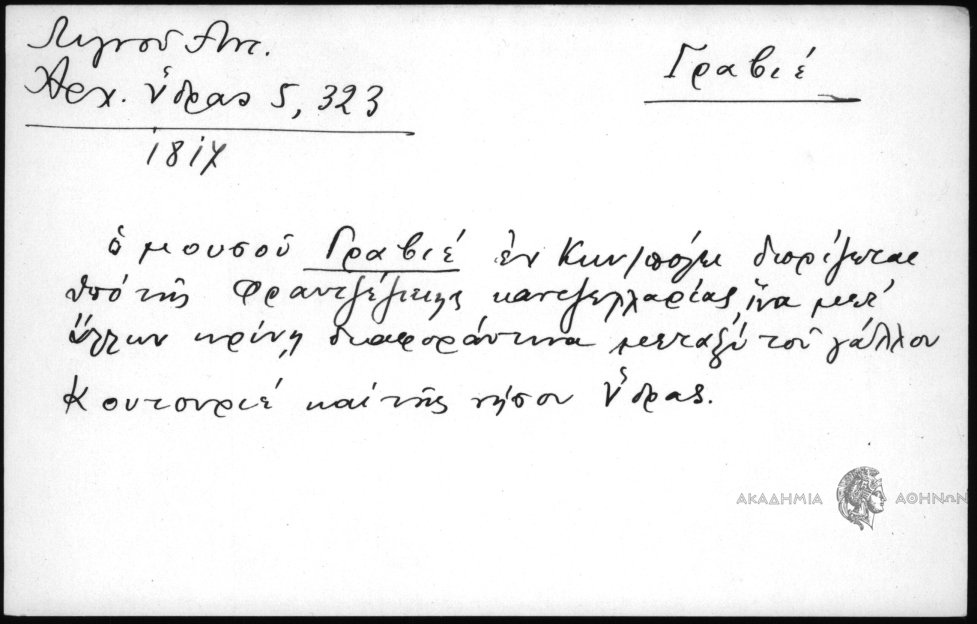 Λιγνού Αντ.
Αρχ. Ύδρας 5, 323
Γραβιέ
1817
ὁ μουσοῦ Γραβιέ ἐν Κων/πόλει διορίζεται
ὑπό τῆς Φραντζέζικης καντζελλαρίας, ἵνα μετ'
ἄλλων κρίνῃ διαφοράν τινα μεταξύ τοῦ γάλλου
Κουτουριέ καί τῆς νήσου Ὕδρας.
ΑΚΑΔΗΜΙΑ ΑΘΗΝΩΝ